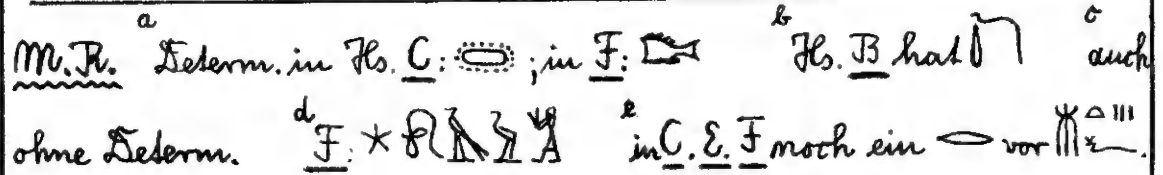 M.R. a Determ. in Hs. C: ; in F: b Hs. B hat c auch
ohne Determ. d F: e in C. E. F noch ein 𓂋 vor